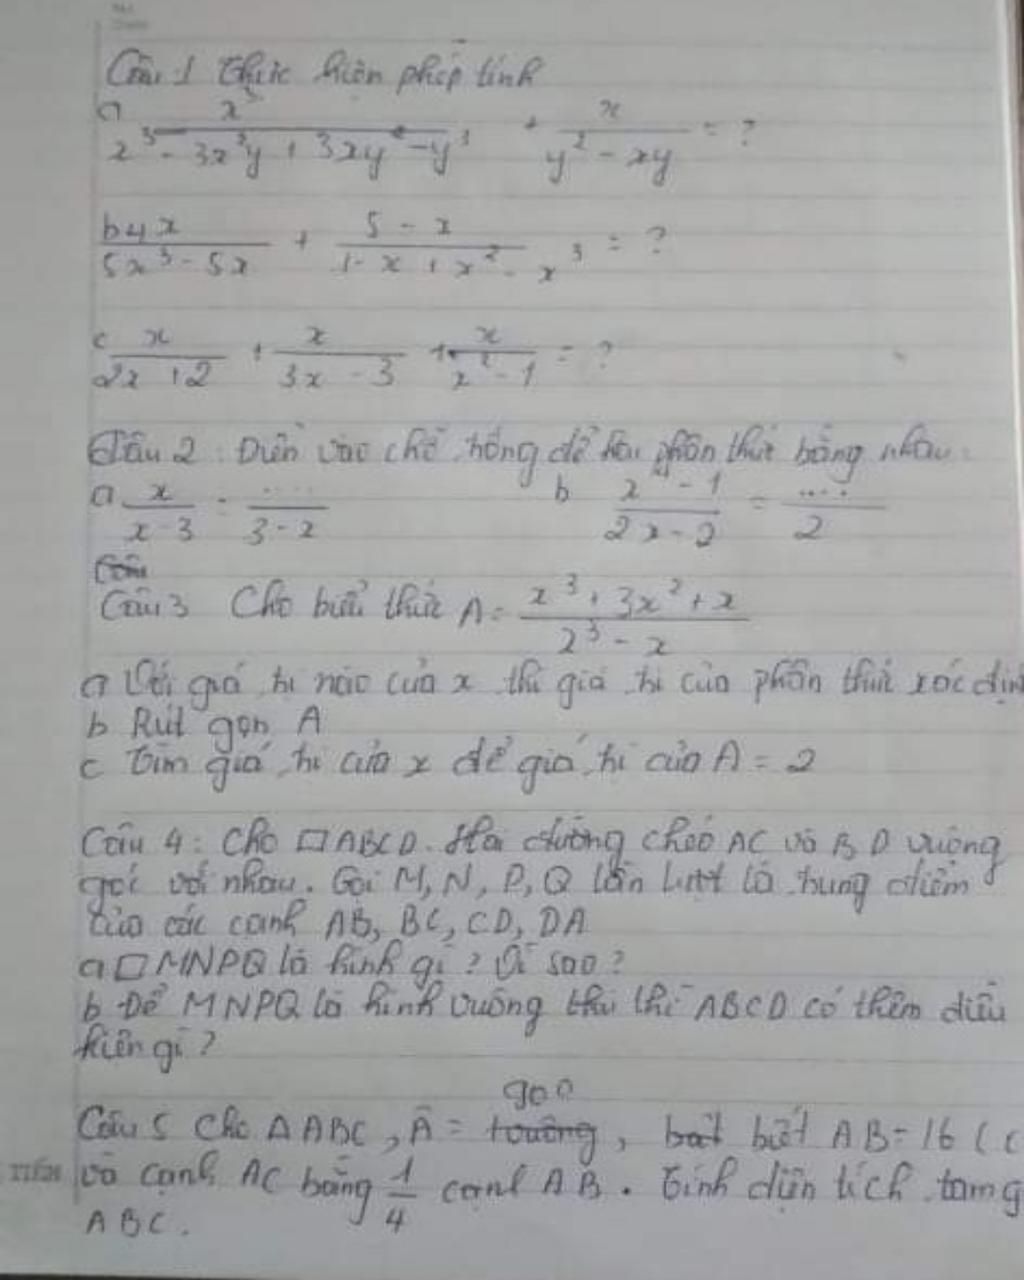 Câu 1 Thực hiện phép tính
a x³ / x³ - 3x²y + 3xy² - y³ + x / y² - xy = ?
b 4x / 5x³ - 5x + 5 - x / 1 - x + x² - x³ = ?
c x / 2x + 2 + x / 3x - 3 + x / x² - 1 = ?
Câu 2: Điền vào chỗ trống để hai phân thức bằng nhau:
a x / x - 3 = ..... / 3 - x b x⁴ - 1 / 2x - 2 = ..... / 2
Câu 3 Cho biểu thức A = x³ + 3x² + x / x³ - x
a Với giá trị nào của x thì giá trị của phân thức xác địn
b Rút gọn A
c Tìm giá trị của x để giá trị của A = 2
Câu 4: Cho □ABCD. Hai đường chéo AC và BD vuông
góc với nhau. Gọi M, N, P, Q lần lượt là trung điểm
của các cạnh AB, BC, CD, DA
a □MNPQ là hình gì? Vì sao?
b Để MNPQ là hình vuông thì ABCD có thêm điều
kiện gì?
Câu 5 Cho ΔABC, Â = 90°, biết AB = 16 (c
và cạnh AC bằng 1/4 cạnh AB. Tính diện tích tamg
ABC.